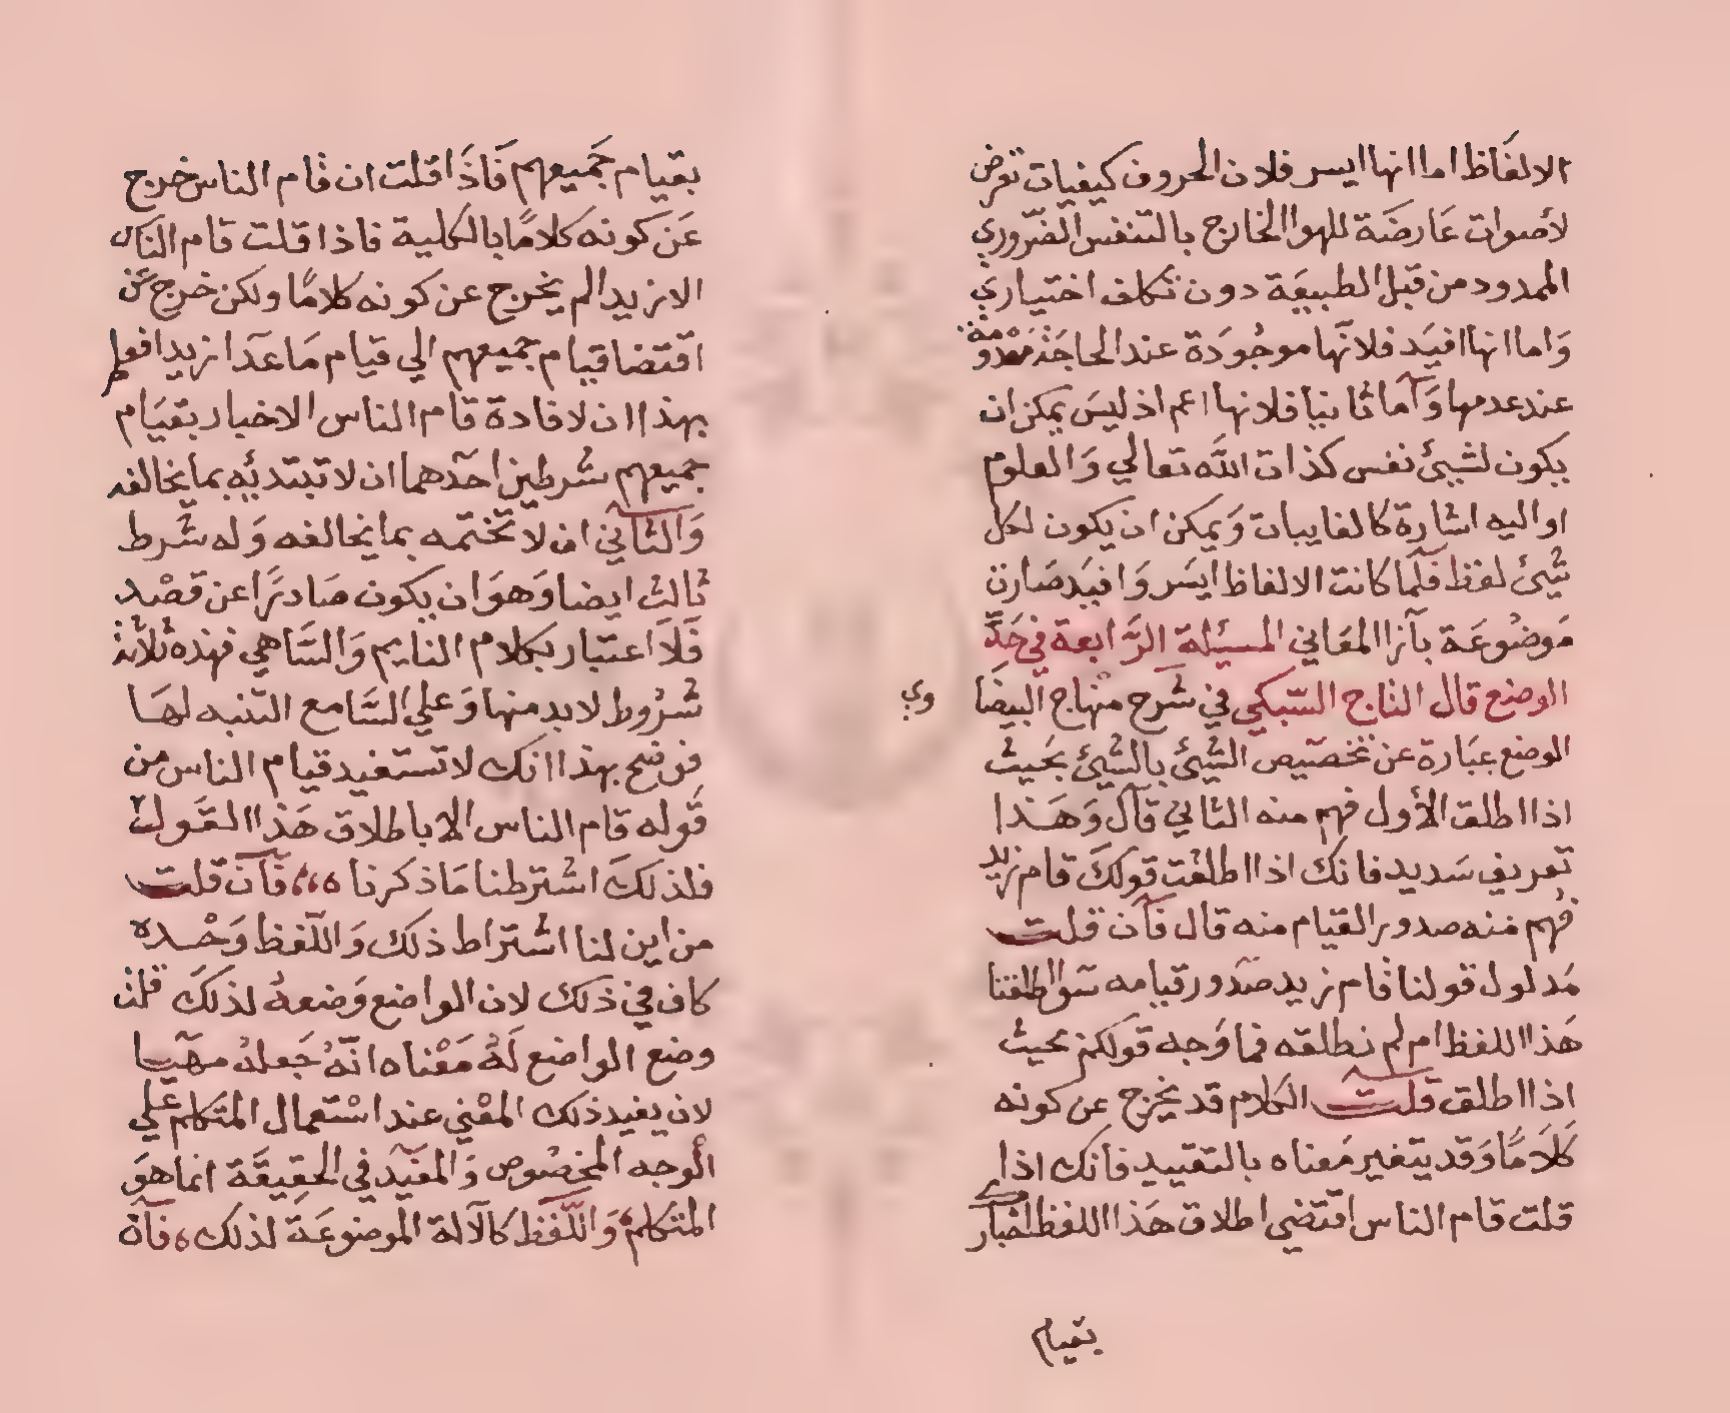 الالفَاظ اما انها ايسر فلان الحروف كيفيات تعرض
لأصوات عَارضَة للهوا الخارج بالتنفس الضّروري
الممدود من قبل الطبيعَة دون تكلف اختياري
وَاما انها افيَد فلانّها موجُودَة عند الحاجَة معْدومة
عند عدمها وَآما ثانيا فلانها اعم اذ ليسَ يمكن ان
يكون لشيئ نفس كذات اللَّه تعالي وَالعلوم
او اليه اشارة كالغايبات وَيمكن ان يكون لكل
شَيئ لفظ فَلَما كانت الالفاظ ايسَر وَافيَد صَارت
مَوضُوعَة بآزا المعَاني المسئلة الرَّابعة في حَدّ
الوضع قال التاج السّبكي في شرح منْهاج البيضَا
وي
الوضع عبَارة عن تخصّيص الشّيئ بالشّيئ بحَيث
اذا اطلق الأول فهم منه الثاني قآل وَهَذا
تعريف سَديد فانك اذا اطلقت قولكَ قام زيد
فُهم منه صدور القيام منه قال فَآن قلت
مَدلول قولنا قام زيد صَدور قيامه سَوا اطلقنا
هَذا اللفظ ام لم نطلقه فما وَجه قولكم بحيث
اذا اطلق قلت الكلام قد يخرج عن كونه
كَلَامًا وَقد يتغير مَعناه بالتقييد فانك اذا
قلت قام الناس اقتضي اطلاق هَذا اللفظ اخبَارك
بقيام
بقيام جَميعهم فَاذَا قلت ان قام الناس خرج
عَن كونه كلامًا بالكلية فاذا قلت قام الناس
الا زيدا لم يخرج عن كونه كلامًا ولكن خرج عَن
اقتضا قيام جميعهم الي قيام مَا عدَا زيدا فعلم
بهذا ان لافادة قام الناس الاخبار بقيَام
جميعهم شرطين احَدهما ان لا تبتديه بما يخالفه
وَالثاني ان لا تختمه بما يخالفه وَله شَرط
ثالث ايضا وَهوَ ان يكون صَادرًا عن قصْد
فَلَا اعتبار بكلام النايم وَالسَّاهي فهذه ثلاثة
شرُوط لابد منها وَعلي السَّامع التنبه لهَا
فوضح بهذا انك لا تستفيد قيام الناس من
قَوله قام الناس الا باطلاق هَذا القَول
فلذلكَ اشترطنا مَا ذكرنا ه،،، فَآن قلت
من اين لنا اشتراط ذلك وَاللّفظ وَحْده
كاف في ذلك لان الواضع وَضعهُ لذلكَ قلت
وضع الواضع لَهُ مَعْناه انّهُ جَعلهُ مهَيا
لان يفيد ذلك المعْني عند اسْتعمال المتكلم علي
الوجه المخصُوص وَالمفيَد في الحقِيقَة انما هوَ
المتكلم وَاللّفظ كالآلة الموضوعَة لذلك ه فآن